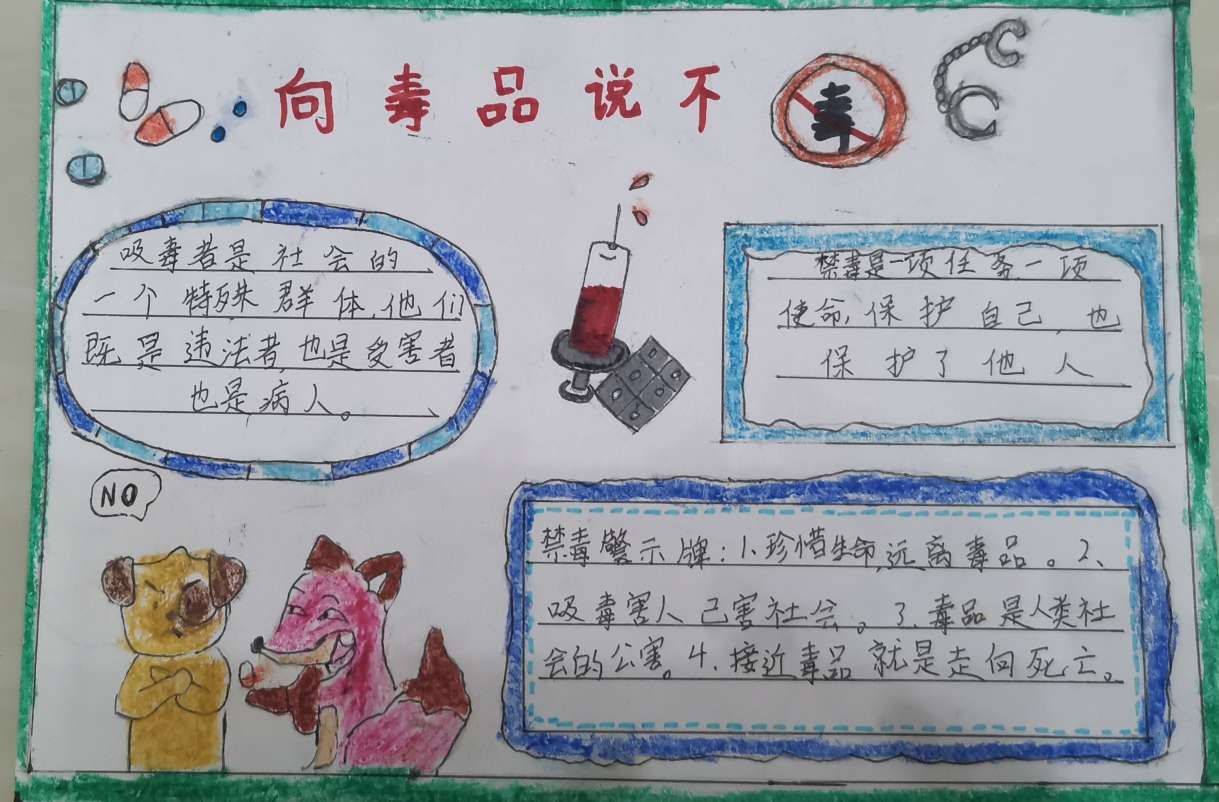 向毒品说不
毒
吸毒者是社会的、
一个特殊群体,他们
既是违法者,也是受害者
也是病人。、
禁毒是一项任务一项
使命,保护自己,也
保护了他人
NO
禁毒警示牌:1、珍惜生命,远离毒品。2、
吸毒害人己害社会。3、毒品是人类社
会的公害。4、接近毒品就是走向死亡。